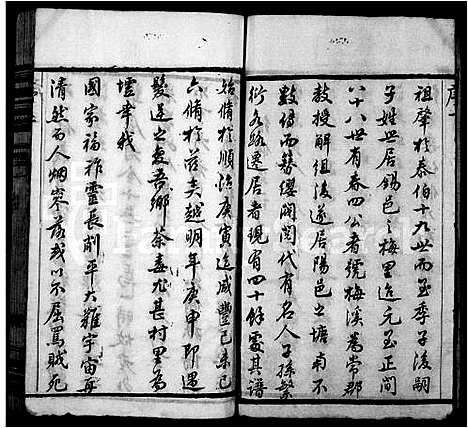 祖肇於泰伯十九世而至季子後嗣
子姓世居錫邑之梅里迨元至正間
八十八世有春四公者號梅溪為常郡
教授解組後遂居陽邑之塘南不
數傳而簪纓閥閱代有名人子孫繁
衍各路遷居者現有四十餘處其譜
始脩於順治庚寅迄咸豐己未已
六脩於茲矣越明年庚申即遇
髮逆之變吾鄉荼毒尤甚村里為
墟幸我
國家福祚靈長削平大難宇宙再
清然而人烟寥落或以不屈罵賊死